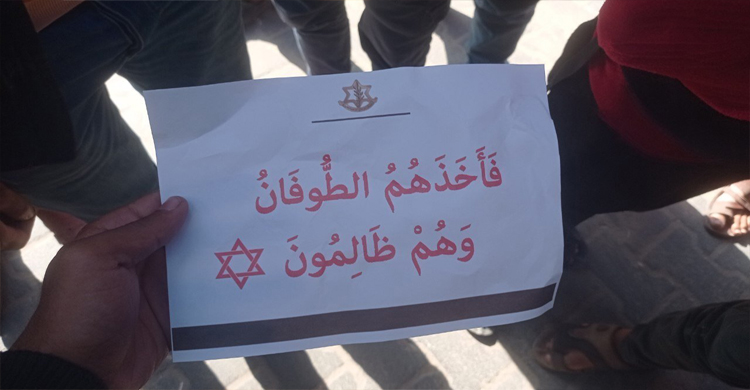 فَأَخَذَهُمُ الطُّوفَانُ
وَهُمْ ظَالِمُونَ